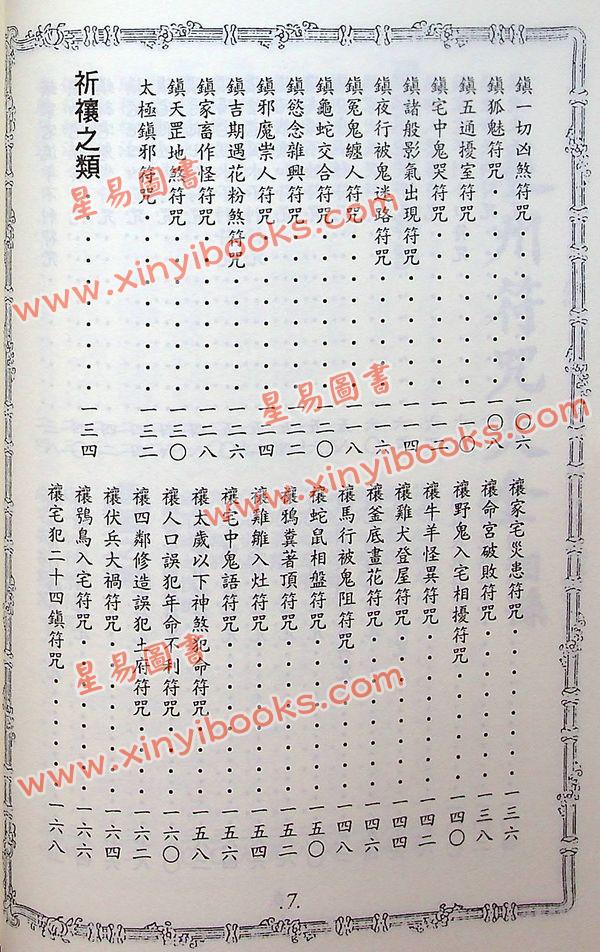 鎮一切凶煞符咒・・・・・・・一〇六
鎮狐魅符咒・・・・・・・・・一〇八
鎮五通擾室符咒・・・・・・・一一〇
鎮宅中鬼哭符咒・・・・・・・一一二
鎮諸般影氣出現符咒・・・・・一一四
鎮夜行被鬼迷路符咒・・・・・一一六
鎮冤鬼纏人符咒・・・・・・・一一八
鎮龜蛇交合符咒・・・・・・・一二〇
鎮慾念雜興符咒・・・・・・・一二二
鎮邪魔祟人符咒・・・・・・・一二四
鎮吉期遇花粉煞符咒・・・・・一二六
鎮家畜作怪符咒・・・・・・・一二八
鎮天罡地煞符咒・・・・・・・一三〇
太極鎮邪符咒・・・・・・・・一三二
祈禳之類・・・・・・・・一三四
禳家宅災患符咒・・・・・・・一三六
禳命宮破敗符咒・・・・・・・一三八
禳野鬼入宅相擾符咒・・・・・一四〇
禳牛羊怪異符咒・・・・・・・一四二
禳雞犬登屋符咒・・・・・・・一四四
禳釜底畫花符咒・・・・・・・一四六
禳馬行被鬼阻符咒・・・・・・一四八
禳蛇鼠相盤符咒・・・・・・・一五〇
禳鴉糞著頂符咒・・・・・・・一五二
禳雞雛入灶符咒・・・・・・・一五四
禳宅中鬼語符咒・・・・・・・一五六
禳太歲以下神煞犯命符咒・・・一五八
禳人口誤犯年命不利符咒・・・一六〇
禳四鄰修造誤犯土府符咒・・・一六二
禳伏兵大禍符咒・・・・・・・一六四
禳鴞鳥入宅符咒・・・・・・・一六六
禳宅犯二十四鎮符咒・・・・・一六八
.7.
星易圖書
www.xinyibooks.com
星易圖書
www.xinyibooks.com
星易圖書
www.xinyibooks.com